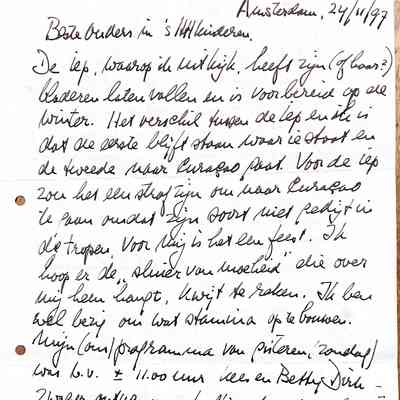 Amsterdam, 24/11/97
Beste Ouders in 's
De iep, waarop ik uitkijk, heeft zijn (of haar?)
bladeren laten vallen en is voorbereid op de
winter. Het verschil tussen de iep en ik is
dat de eerste blijft staan waar ie staat en
de tweede naar Curaçao gaat. Voor de iep
zou het een straf zijn om naar Curaçao
te gaan omdat zijn soort niet gedijt in
de tropen. Voor mij is het een feest. Ik
hoop er de "sluier van moeheid" die over
mij heen hangt, kwijt te raken. Ik ben
wel bezig om wat stamina op te bouwen.
Mijn (ons) programma van gisteren (zondag)
was b.v. ± 11.00 uur Kees en Betty Dirk-